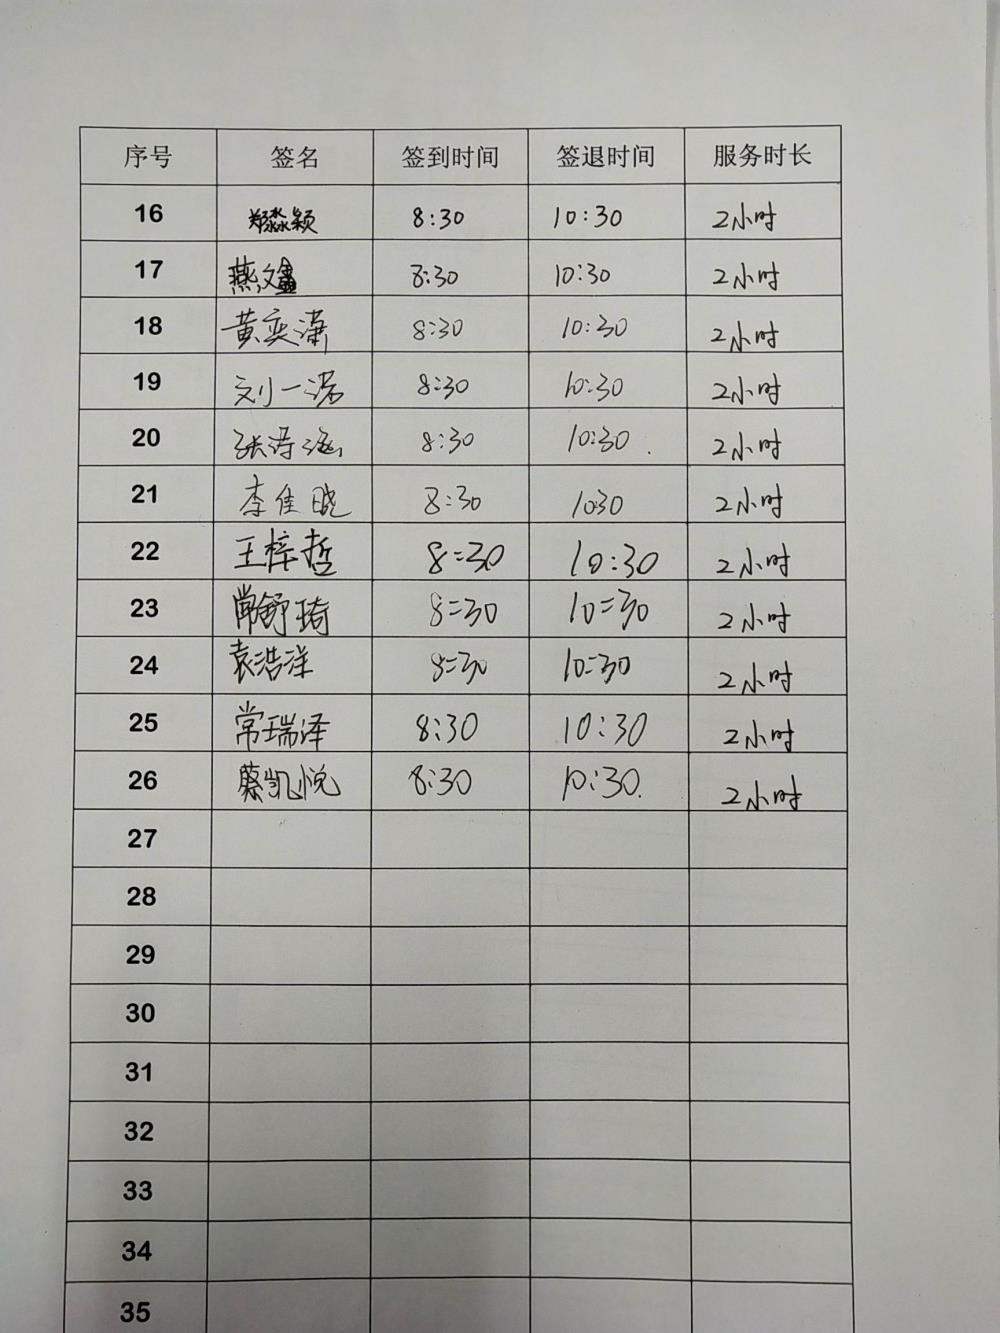 序号 签名 签到时间 签退时间 服务时长
16 郑淼颖 8:30 10:30 2小时
17 燕文 8:30 10:30 2小时
18 黄奕潇 8:30 10:30 2小时
19 刘一诺 8:30 10:30 2小时
20 张涛 8:30 10:30 2小时
21 李佳晓 8:30 1030 2小时
22 王梓哲 8=30 10:30 2小时
23 常舒琦 8=30 10=30 2小时
24 袁浩洋 8=30 10=30 2小时
25 常瑞泽 8:30 10:30 2小时
26 蔡凯悦 8:30 10:30. 2小时
27
28
29
30
31
32
33
34
35